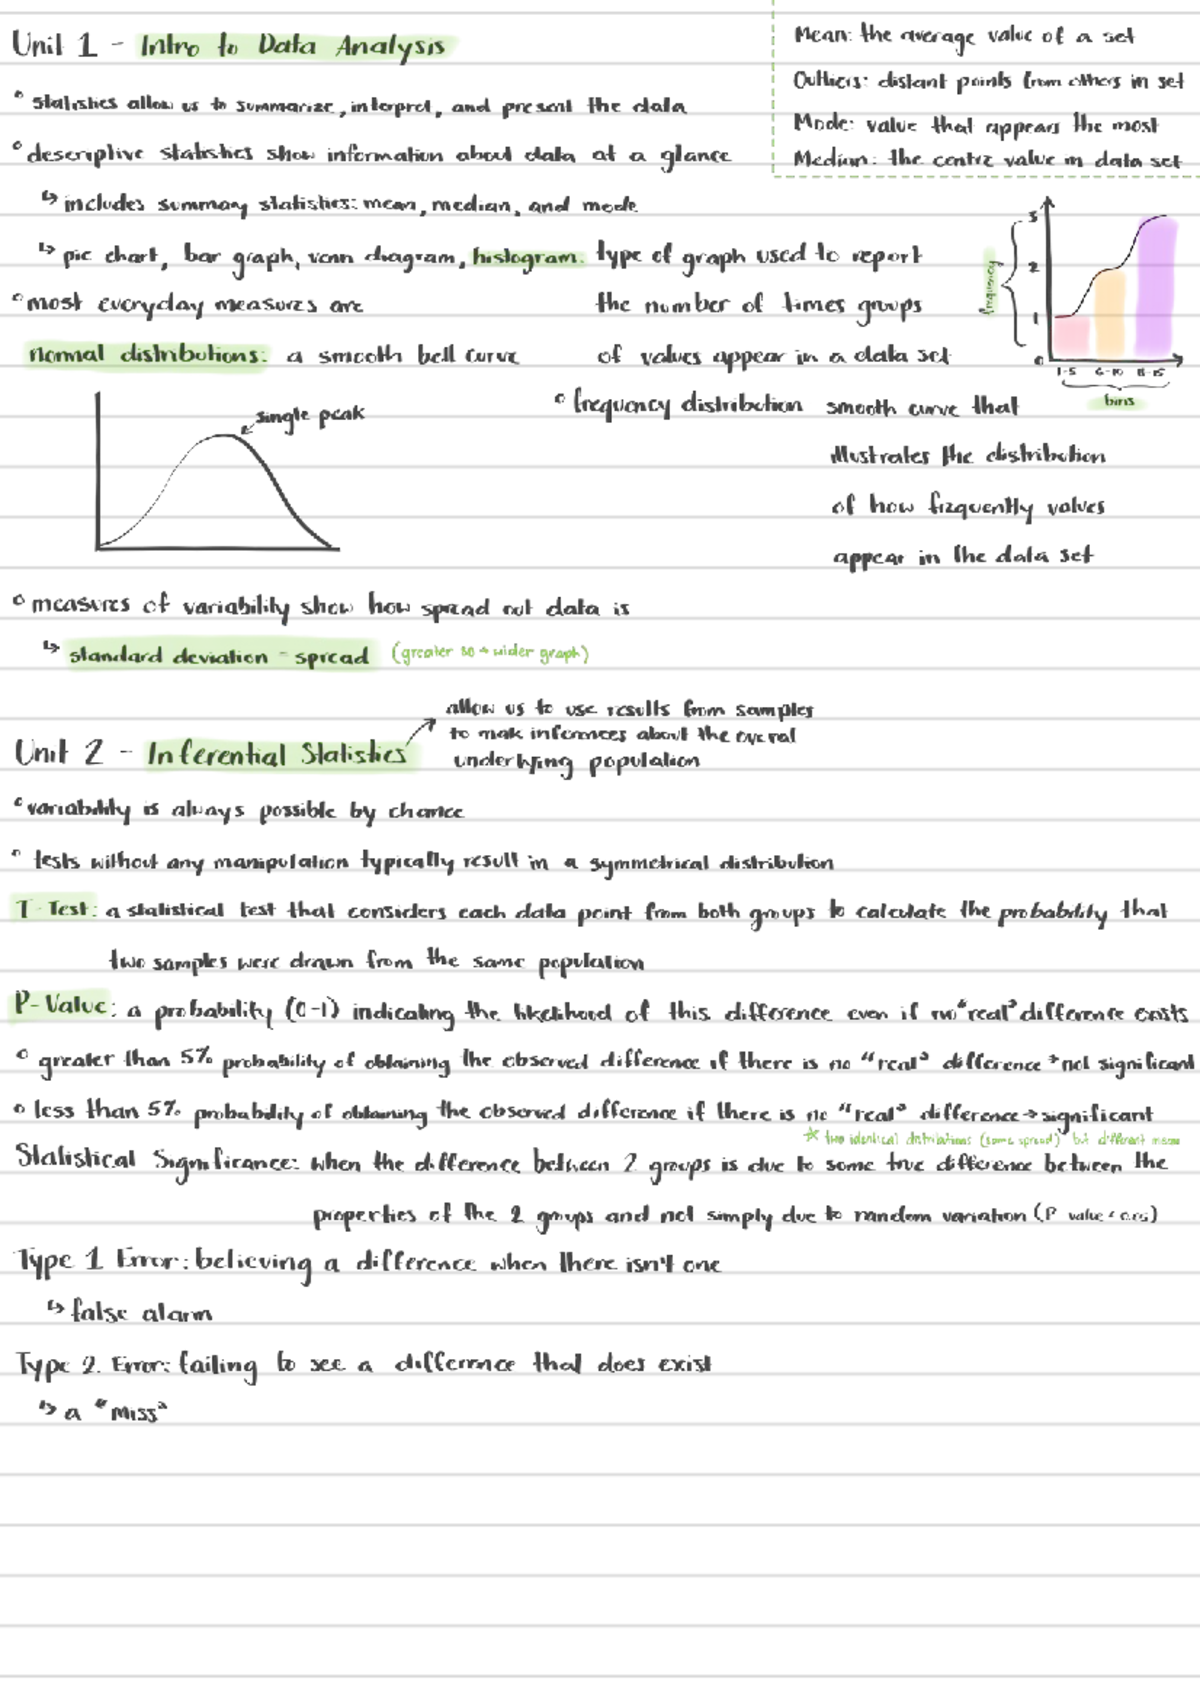 Unit 1 - Intro to Data Analysis
° statistics allow us to summarize, interpret, and present the data
° descriptive statistics show information about data at a glance
↳ includes summary statistics: mean, median, and mode
↳ pie chart, bar graph, venn diagram, histogram: type of graph used to report
the number of times groups
of values appear in a data set
Mean: the average value of a set
Outliers: distant points from others in set
Mode: value that appears the most
Median: the centre value in data set
frequency
3
2
1
0
1-5 6-10 11-15
bins
° most everyday measures are
normal distributions: a smooth bell curve
single peak
° frequency distribution smooth curve that
illustrates the distribution
of how frequently values
appear in the data set
° measures of variability show how spread out data is
↳ standard deviation - spread (greater SD → wider graph)
Unit 2 - Inferential Statistics
allow us to use results from samples
to mak inferences about the overal
underlying population
° variability is always possible by chance
° tests without any manipulation typically result in a symmetrical distribution
T-Test: a statistical test that considers each data point from both groups to calculate the probability that
two samples were drawn from the same population
P-Value: a probability (0-1) indicating the likelihood of this difference even if no "real" difference exists
° greater than 5% probability of obtaining the observed difference if there is no "real" difference → not significant
° less than 5% probability of obtaining the observed difference if there is no "real" difference → significant
☆ two identical distributions (same spread) but different means
Statistical Significance: when the difference between 2 groups is due to some true difference between the
properties of the 2 groups and not simply due to random variation (P value < 0.05)
Type 1 Error: believing a difference when there isn't one
↳ false alarm
Type 2 Error: failing to see a difference that does exist
↳ a "miss"